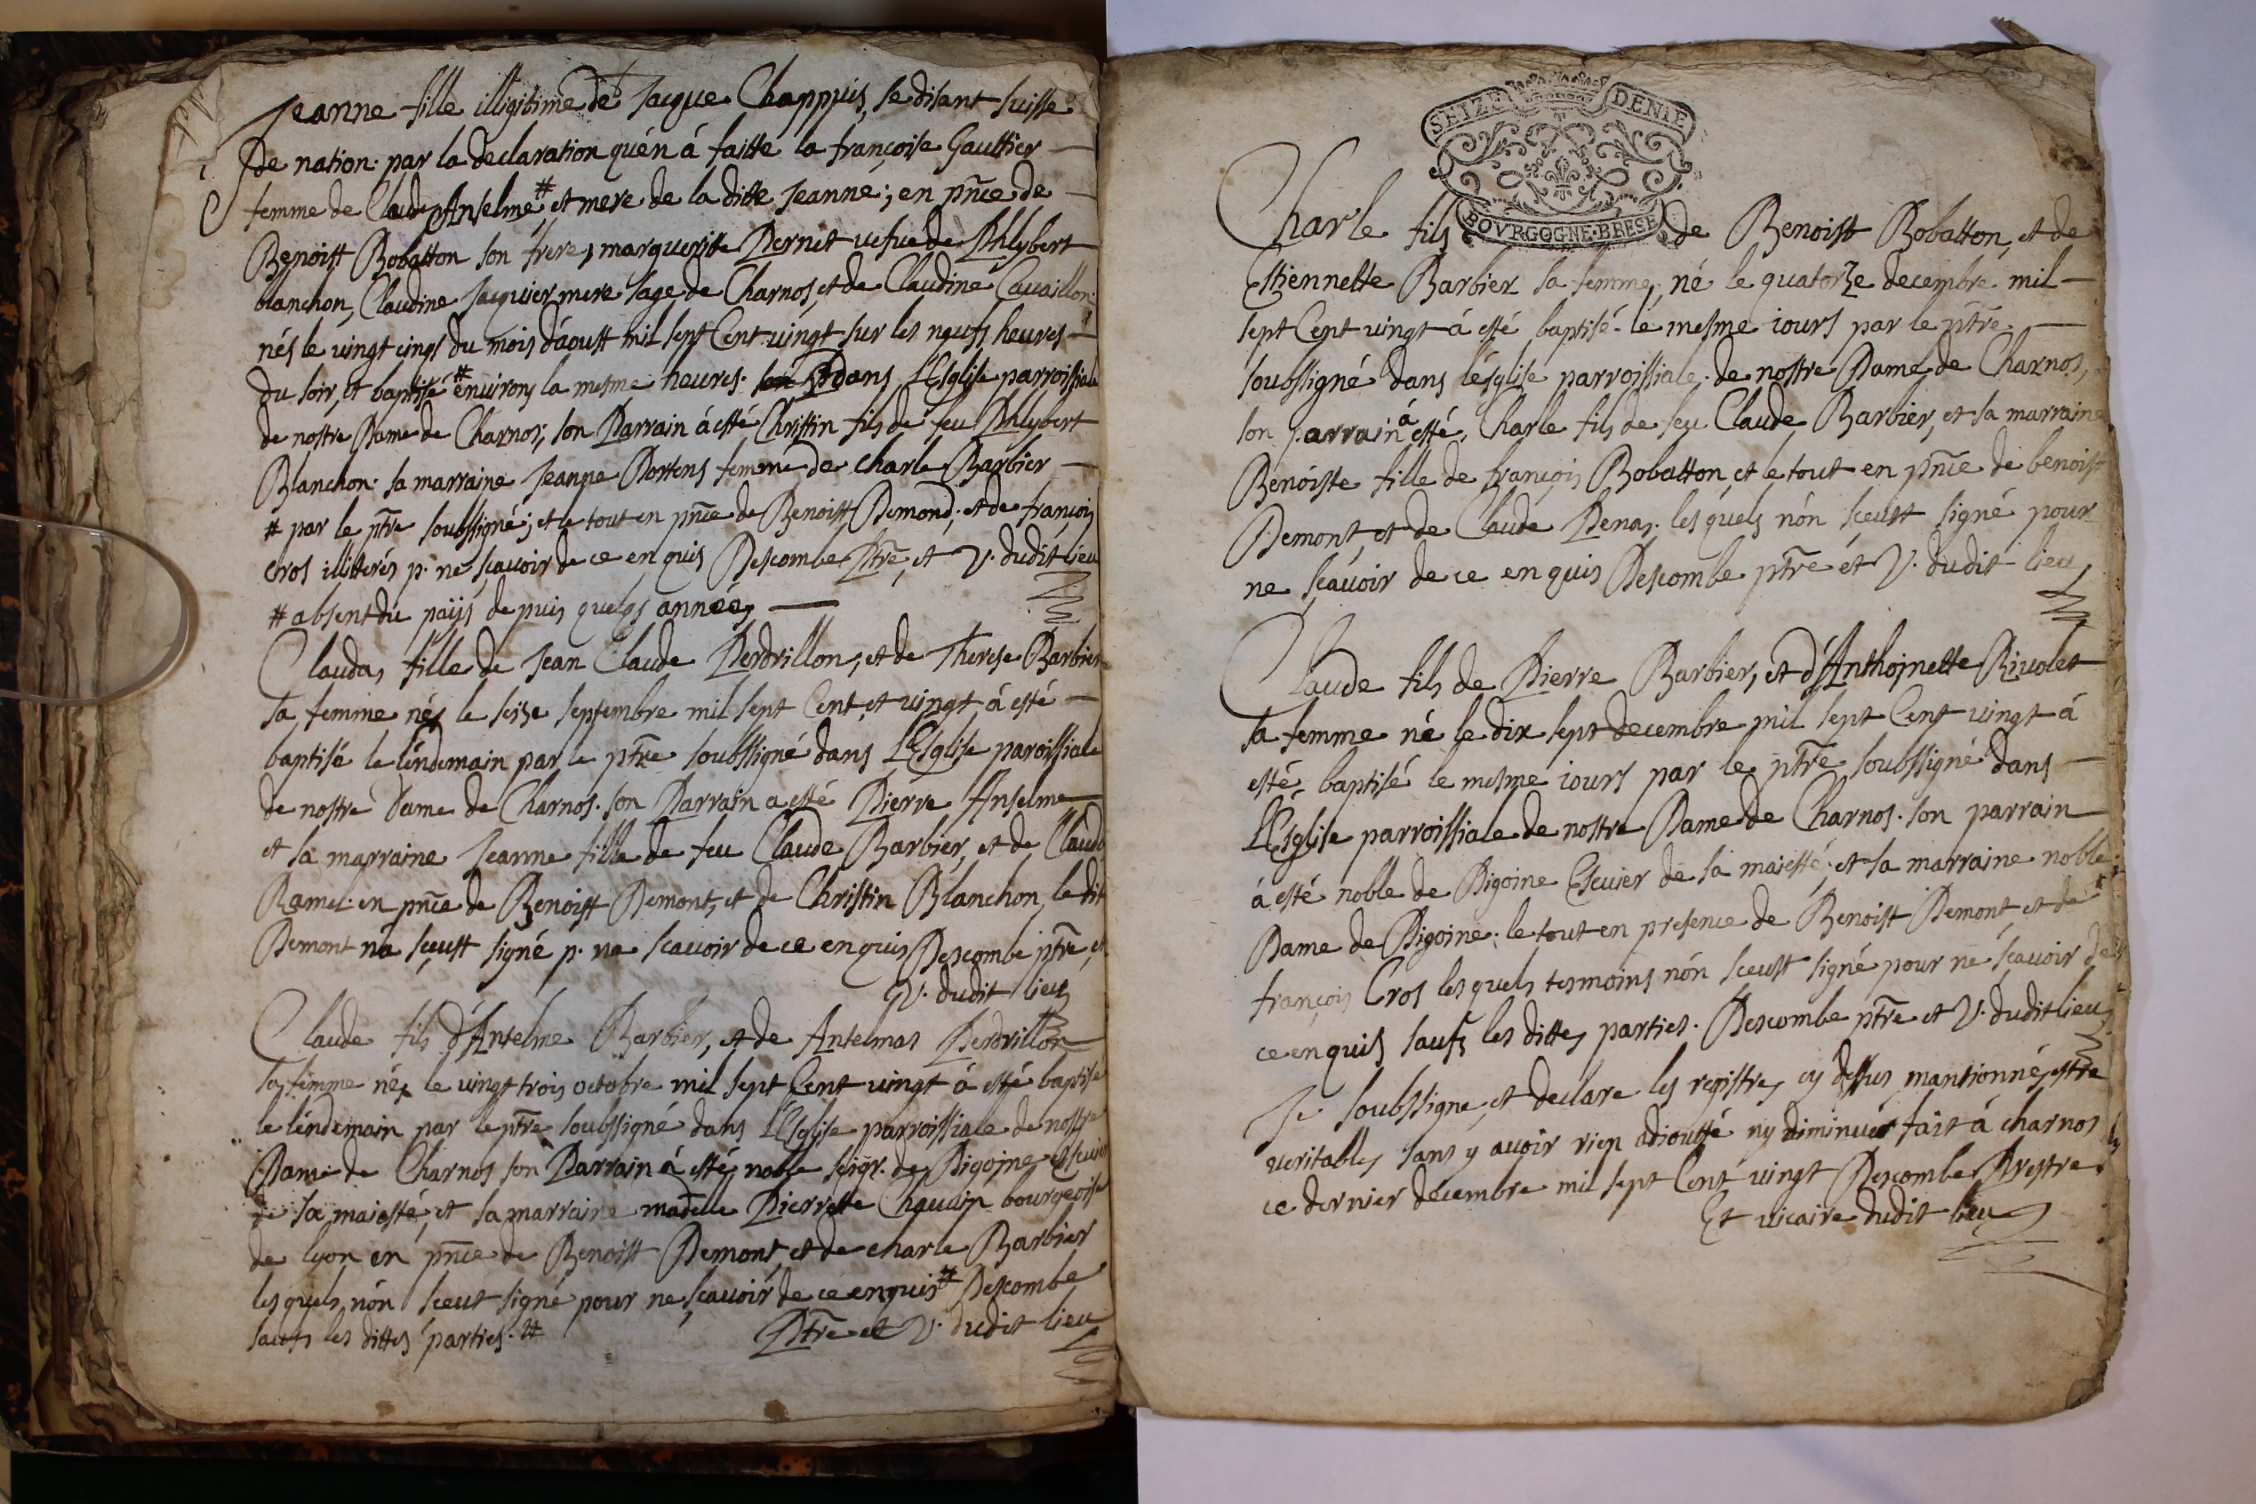 Jeanne fille illigitime de Jacque Chappuis, se disant suisse
de nation: par la declaration qu'en á faitte la françoise Gaultier
femme de Claude Anselme # et mere de la ditte Jeanne; en pn̄ce de
Benoist Bobatton son frere, marguerite Pernet vefve de Phlybert
blanchon, Claudine Jacquier mere sage de Charnos, et de Claudine Cavaillon:
nés le vingt cinqs du mois d'áoust mil sept Cent vingt sur les neufs heures
du soir, et baptisé # environs la mesme heures. dans L'Esglise parroissiale
de nostre Dame de Charnos; son Parrain á esté Christin fils de feu Phlybert
Blanchon: sa marraine Jeanne Portens femme de Charle Barbier
# par le ptr̄e soubssigné; et le tout en pn̄ce de Benoist Demond, et de françois
Cros illitérés p. ne sçavoir de ce enquis Descombe Ptr̄e et V. dudit lieu
# absent du païjs de puis quelqs années
Claudas fille de Jean Claude Perdrillon, et de Therese Barbier
sa femme nés le seize septembre mil sept Cent et vingt á esté
baptisé le lendemain par le ptr̄e soubssigné dans L'Esglise paroissiale
de nostre Dame de Charnos. son Parrain a esté Pierre Anselme
et sa marraine Jeanne fille de feu Claude Barbier, et de Claude
Ramel: en pn̄ce de Benoist Demont, et de Christin Blanchon, le dit
Demont ná sçeust signé p. ne scavoir de ce enquis Descombe ptr̄e et
V. dudit lieu
Claude fils d'Antelme Barbier, et de Antelmas Perdrillon
sa femme nés le vingt trois octobre mil sept Cent vingt á esté baptisé
le lendemain par le ptr̄e soubssigné dans L'Esglise parroissiale de nostre
Dame de Charnos son Parrain á esté noble seigr. de Digoine Escuier
de sa maiesté, et sa marraine madelle Pierrette Chauvin bourgeoise
de lyon en pn̄ce de Benoist Demont, et de charle Barbier
les quels nón sceut signé pour ne sçavoir de ce enquis # Descombe
saufs les dittes parties. # Ptr̄e et V. dudit lieu
SEIZE DENIE
BOVRGOGNE·BRESE
Charle fils de Benoist Bobatton, et de
Estiennette Barbier sa femme, né le quatorze decembre mil
sept Cent vingt á esté baptisé le mesme iours par le ptr̄e
soubssigné dans lésglise parroissiale de nostre Dame de Charnos,
son parrain á esté Charle fils de feu Claude Barbier, et sa marraine
Benoiste fille de françois Bobatton, et le tout en pn̄ce de benoist
Demont, et de Claude Penas; les quels nón sceust signé pour
ne sçavoir de ce enquis Descombe ptr̄e ét V. dudit lieu
Claude fils de Pierre Barbier, et d'Anthoinette Rivolet
sa femme né le dix sept decembre mil sept Cent vingt á
esté baptisé le mesme iours par le ptr̄e soubssigné dans
L'Esglise parroissiale de nostre Dame de Charnos. son parrain
á esté noble de Digoine Escuier de sa maiesté, et sa marraine noble
Dame de Digoine. le tout en presence de Benoist Demont, et de
françois Cros les quels tesmoins nón sceust signé pour ne sçavoir de
ce enquis saufs les dittes parties. Descombe ptr̄e et V. dudit lieu
Je soubssigne, et declare les registres cy dessus mantionnés estre
veritables sans y avoir rien adioutté ny diminuér fait á charnos
ce dernier décembre mil sept Cent vingt Descombe Prestre
Et vicaire dudit lieu